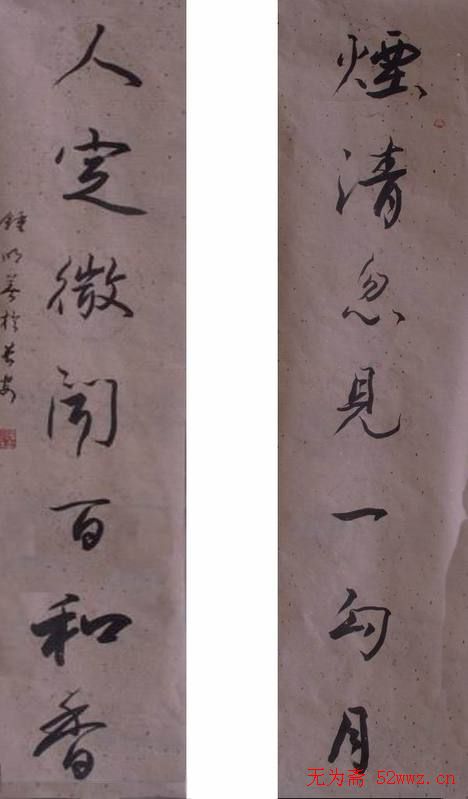 煙清忽見一勾月
人定微聞百和香
鍾明善於長安
无为斋 52wwz.cn